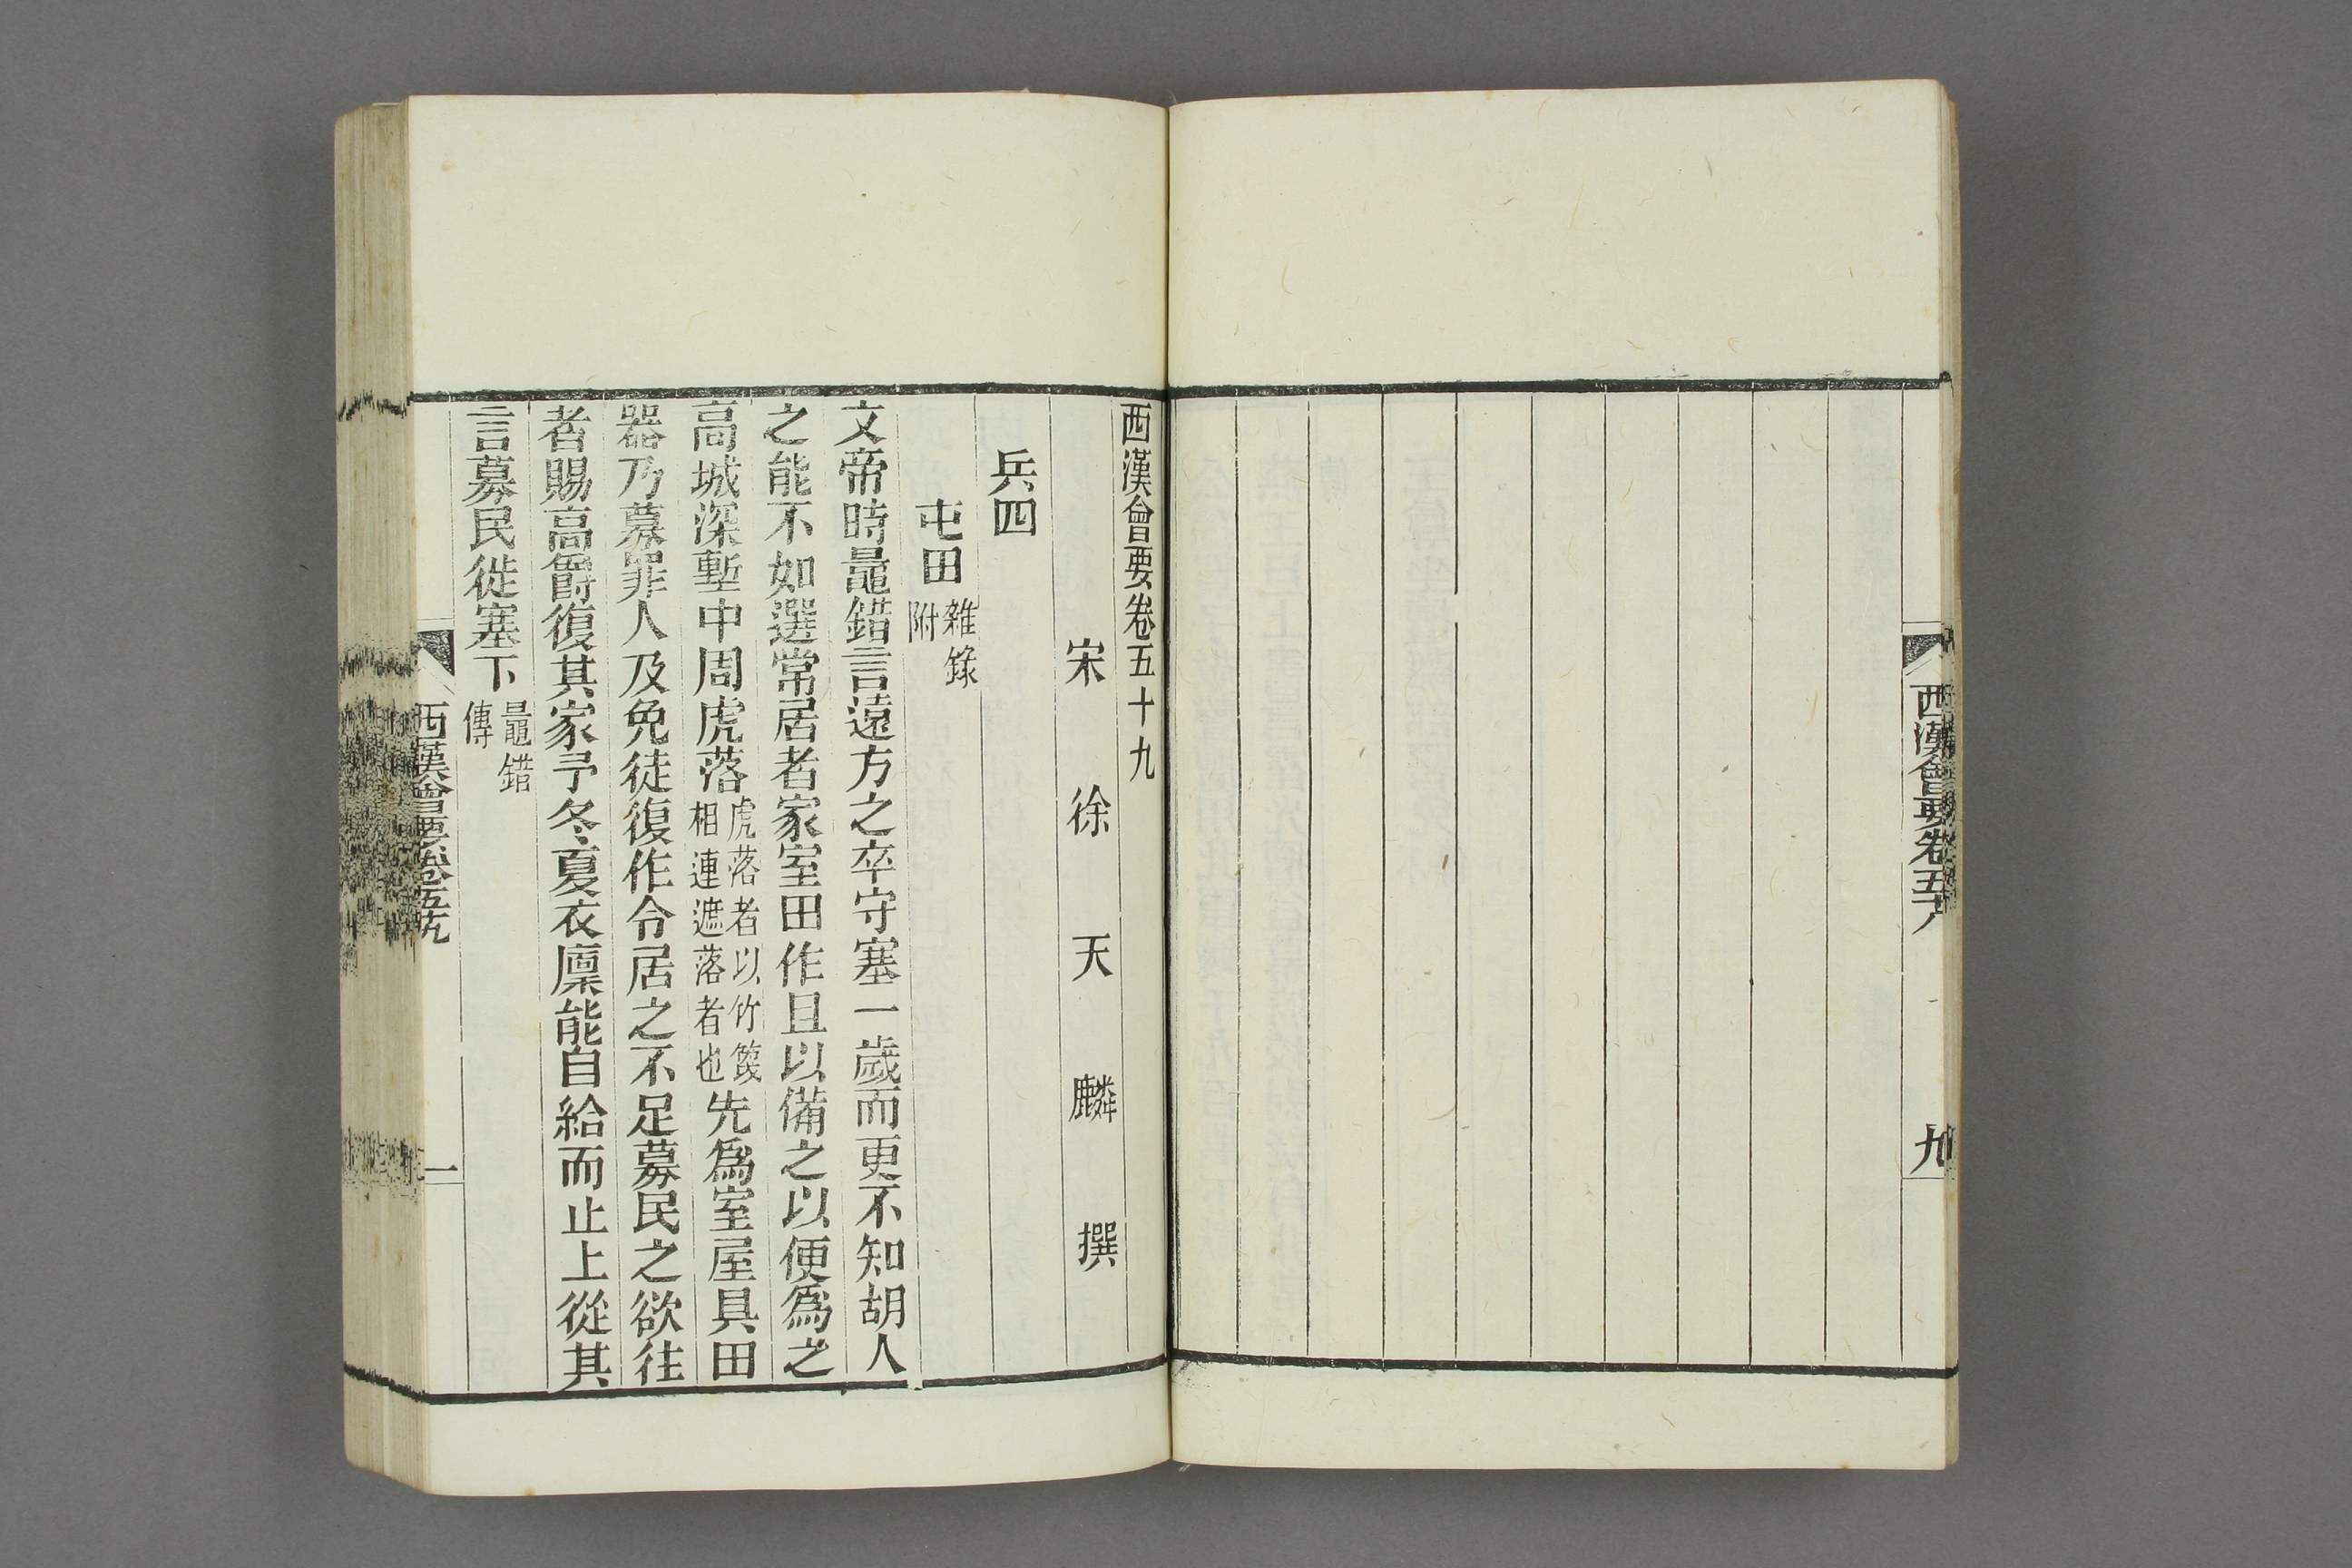 西漢會要卷五十八
九
西漢會要卷五十九
宋徐天麟撰
兵四
屯田雜錄附
文帝時鼂錯言遠方之卒守塞一歲而更不知胡人
之能不如選常居者家室田作且以備之以便爲之
高城深塹中周虎落虎落者以竹篾相連遮落者也先爲室屋具田
器乃募罪人及免徒復作令居之不足募民之欲往
者賜高爵復其家予冬夏衣廩能自給而止上從其
言募民徙塞下鼂錯傳
西漢會要卷五十九
一